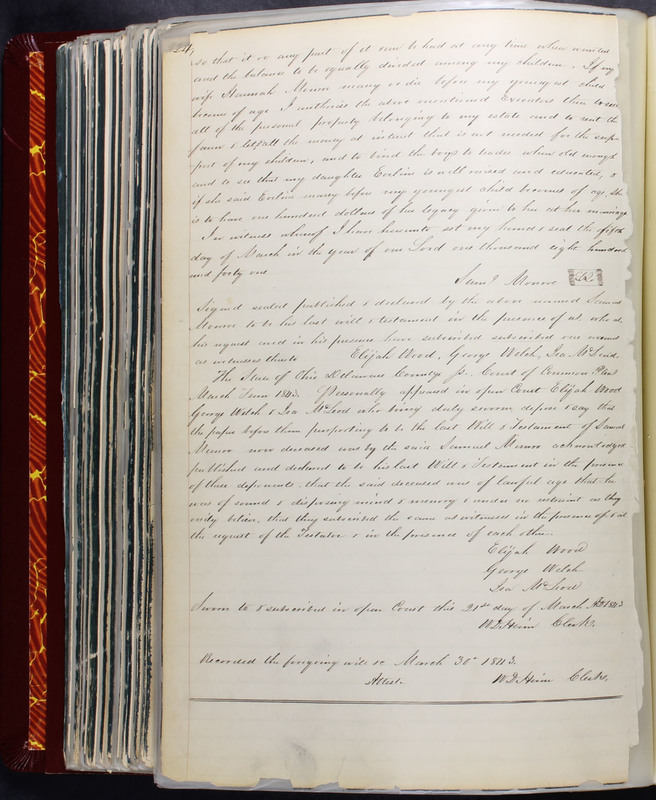 24
so that it or any part of it can be had at any time when wanted
and the balance to be equally divided among my children, If my
wife Hannah Monroe marry or die before my youngest child
becomes of age I authorise the above mentioned Executors then to
all of the personal property belonging to my estate and to rent the
farm & let all the money at interest that is not needed for the sup-
port of my children, and to bind the boys to trades when old enough
and to see that my daughter Eveline is well raised and educated, &
if she said Eveline marry before my youngest child becomes of age, she
is to have one hundred dollars of her legacy given to her at her marriage
In witness whereof I have hereunto set my hand & seal the fifth
day of March in the year of our Lord one thousand eight hundred
and forty one
Saml Monroe
Signed sealed published & declared by the above named Samuel
Monroe to be his last will & testament in the presence of us who at
his request and in his presence have subscribed subscribed our names
as witnesses thereto Elijah Wood, George Welch, Ira McLeod
The State of Ohio Delaware County Ss. Court of Common Pleas
March Term 1843. Personally appeared in open Court Elijah Wood
George Welch & Ira McLeod who being duly sworn depose & say that
the paper before them purporting to be the last Will & Testament of Samuel
Monroe now deceased was by the said Samuel Monroe acknowledged
published and declared to be his last Will & Testament in the presence
of these deponents, that the said deceased was of lawful age that he
was of sound & disposing mind & memory & under no restraint as they
verily believe, that they subscribed the same as witnesses in the presence of & at
the request of the Testator & in the presence of each other.
Elijah Wood
George Welch
Ira McLeod
Sworn to & subscribed in open Court this 21st day of March AD 1843
W D Heim Clerk.
Recorded the foregoing will &c March 30th 1843.
Attest W D Heim Clerk.